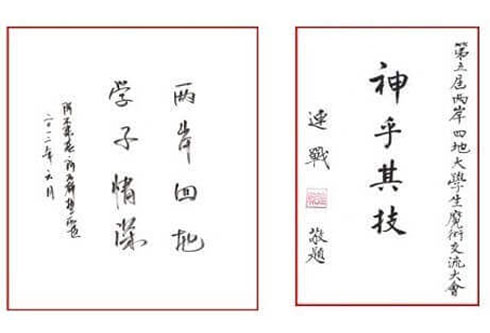 两岸四地
学子情深
二〇一二年六月
第五屆两岸四地大學生魔術交流大會
神乎其技
連戰 敬題